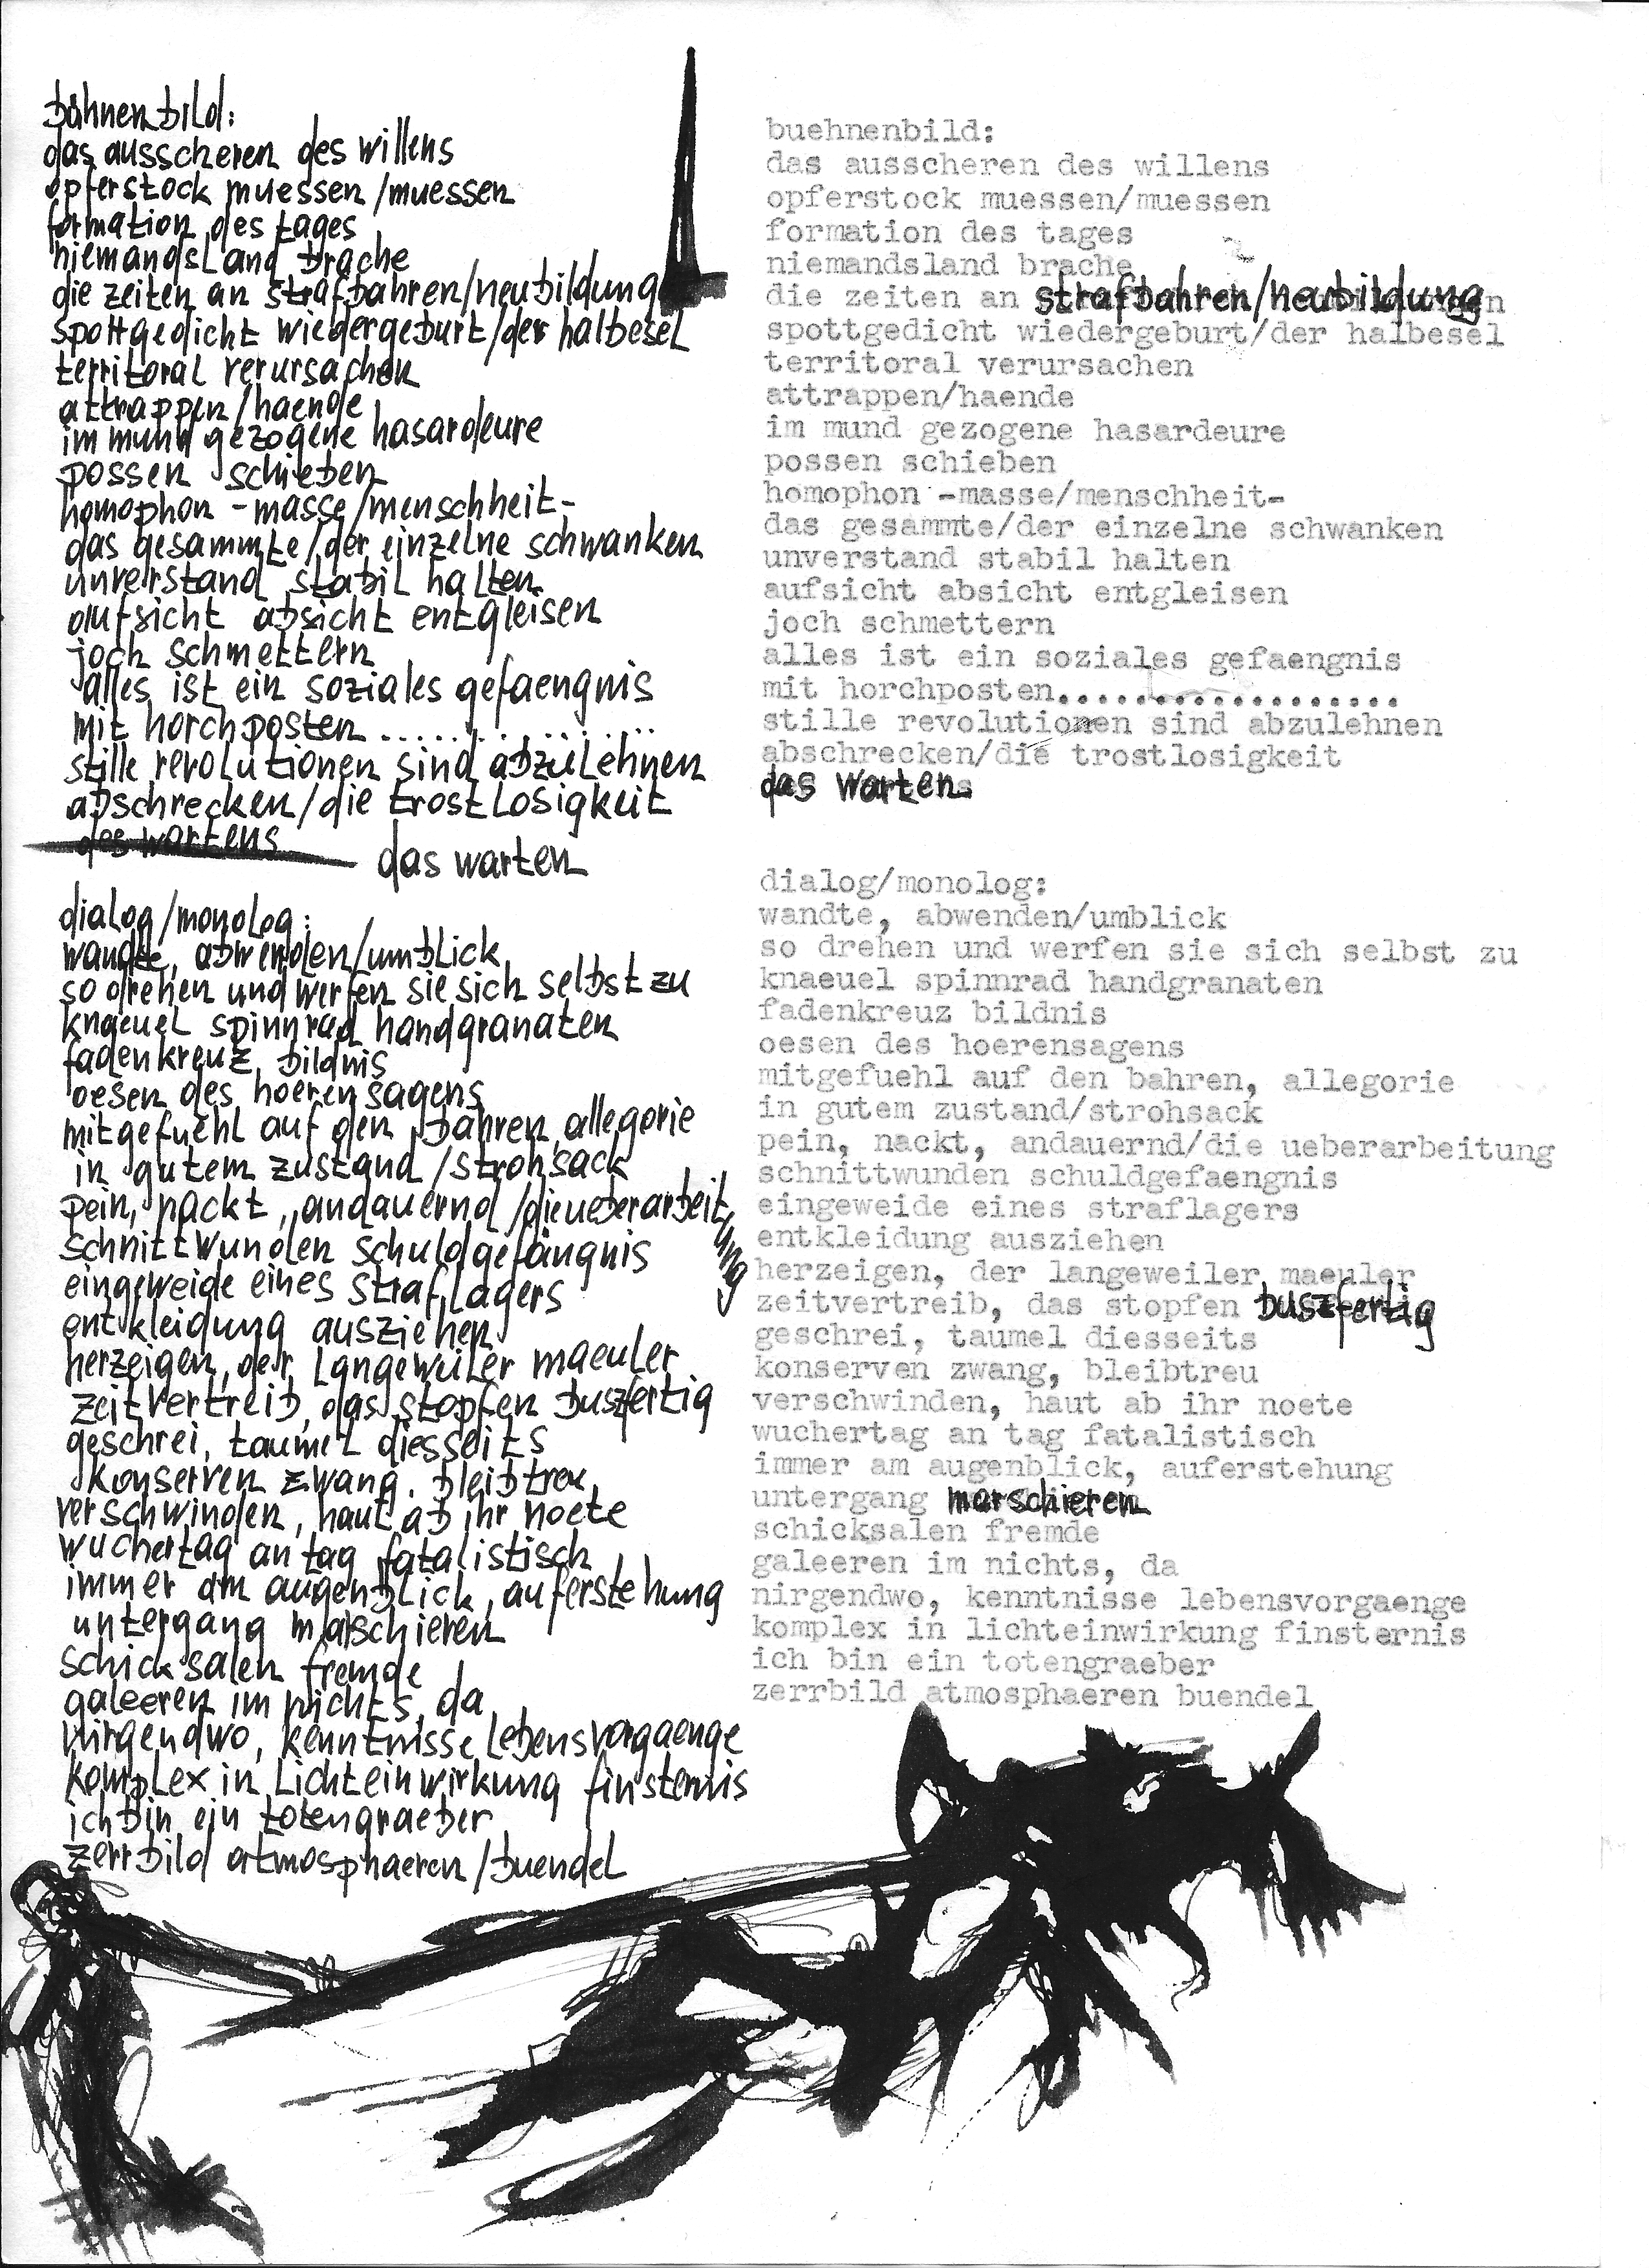 bühnenbild:
das ausscheren des willens
opferstock muessen/muessen
formation des tages
niemandsland brache
die zeiten an strafbahren/neubildung
spottgedicht wiedergeburt/der halbesel
territoral verursachen
attrappen/haende
im mund gezogene hasardeure
possen schieben
homophon -masse/menschheit-
das gesammte/der einzelne schwanken
unverstand stabil halten
aufsicht absicht entgleisen
joch schmettern
alles ist ein soziales gefaengnis
mit horchposten..................
stille revolutionen sind abzulehnen
abschrecken/die trostlosigkeit
des wartens das warten
dialog/monolog:
wandte, abwenden/umblick
so drehen und werfen sie sich selbst zu
knaeuel spinnrad handgranaten
fadenkreuz bildnis
oesen des hoerensagens
mitgefuehl auf den bahren, allegorie
in gutem zustand/strohsack
pein, nackt, andauernd/die ueberarbeitung
schnittwunden schuldgefängnis
eingeweide eines straflagers
entkleidung ausziehen
herzeigen, der langeweiler maeuler
zeitvertreib, das stopfen buszfertig
geschrei, taumel diesseits
konserven zwang, bleibtreu
verschwinden, haut ab ihr noete
wuchertag an tag fatalistisch
immer am augenblick, auferstehung
untergang marschieren
schicksalen fremde
galeeren im nichts, da
nirgendwo, kenntnisse lebensvorgaenge
komplex in lichteinwirkung finsternis
ich bin ein totengraeber
zerrbild atmosphaeren/buendel
buehnenbild:
das ausscheren des willens
opferstock muessen/muessen
formation des tages
niemandsland brache
die zeiten an strafbahren/neubildung
spottgedicht wiedergeburt/der halbesel
territoral verursachen
attrappen/haende
im mund gezogene hasardeure
possen schieben
homophon -masse/menschheit-
das gesammte/der einzelne schwanken
unverstand stabil halten
aufsicht absicht entgleisen
joch schmettern
alles ist ein soziales gefaengnis
mit horchposten..................
stille revolutionen sind abzulehnen
abschrecken/die trostlosigkeit
das warten
dialog/monolog:
wandte, abwenden/umblick
so drehen und werfen sie sich selbst zu
knaeuel spinnrad handgranaten
fadenkreuz bildnis
oesen des hoerensagens
mitgefuehl auf den bahren, allegorie
in gutem zustand/strohsack
pein, nackt, andauernd/die ueberarbeitung
schnittwunden schuldgefaengnis
eingeweide eines straflagers
entkleidung ausziehen
herzeigen, der langeweiler maeuler
zeitvertreib, das stopfen buszfertig
geschrei, taumel diesseits
konserven zwang, bleibtreu
verschwinden, haut ab ihr noete
wuchertag an tag fatalistisch
immer am augenblick, auferstehung
untergang marschieren
schicksalen fremde
galeeren im nichts, da
nirgendwo, kenntnisse lebensvorgaenge
komplex in lichteinwirkung finsternis
ich bin ein totengraeber
zerrbild atmosphaeren buendel